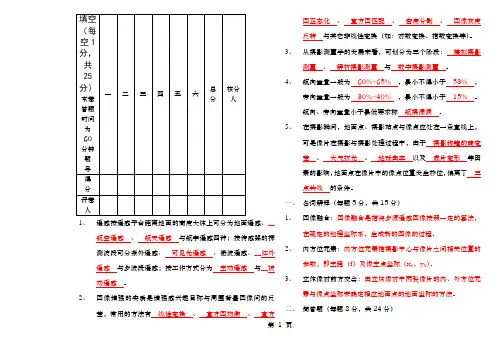 填空
(每
空1
分,
共
25
分)
本卷
答题
时间
为
60
分钟
题
号
一 二 三 四 五 六 总分 核分人
得
分
评卷
人
1、 遥感按遥感平台距离地面的高度大体上可分为地面遥感、
航空遥感 、 航天遥感 与航宇遥感四种;按传感器的探
测波段可分紫外遥感、 可见光遥感 、微波遥感、 红外
遥感 与多波段遥感;按工作方式分为 主动遥感 与 被
动遥感 。
2、 图像增强的实质是增强感兴趣目标与周围背景图像间的反
差,常用的方法有 线性变换 、 直方图均衡 、 直方
图正态化 、 直方图匹配 、 密度分割 、 图像灰度
反转 与其它非线性变换(如:对数变换、指数变换等)。
3、 从摄影测量学的发展来看,可划分为三个阶段: 模拟摄影
测量 、 解析摄影测量 与 数字摄影测量 。
4、 航向重叠一般为 60%~65% ,最小不得小于 53% ,
旁向重叠一般为 30%~40% ,最小不得小于 15% 。
航向、旁向重叠小于最低要求称 航摄漏洞 。
5、 在摄影瞬间,地面点、摄影站点与像点应处在一条直线上,
可是像片在摄影与摄影处理过程中,由于 摄影物镜的畸变
差 、 大气折光 、 地球曲率 以及 底片变形 等因
素的影响,地面点在像片中的像点位置发生移位,偏离了 三
点共线 的条件。
一、 名词解释(每题5分,共15分)
1、 图像融合:图像融合是指将多源遥感图像按照一定的算法,
在规定的地理坐标系,生成新的图像的过程。
2、 内方位元素:内方位元素指摄影中心与像片之间相关位置的
参数,即主距(f)及像主点坐标(x₀,y₀)。
3、 立体像对前方交会:由立体像对中两张像片的内、外方位元
素与像点坐标来确定相应地面点的地面坐标的方法。
二、 简答题(每题8分,共24分)
第 1 页